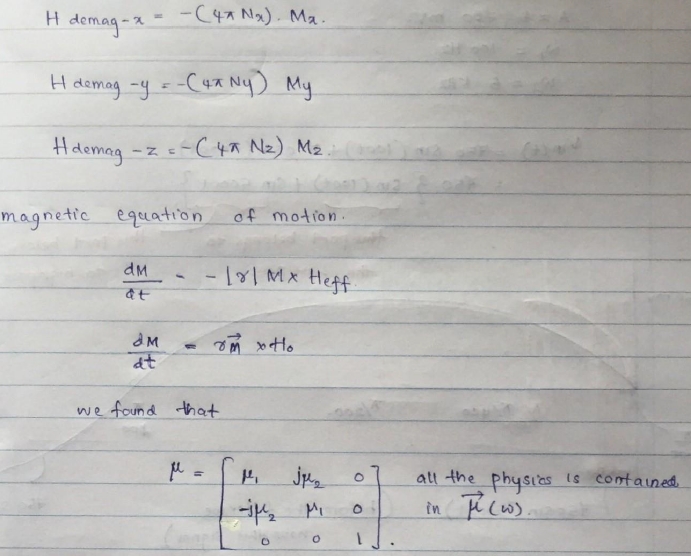 H demag-x = -(4π Nx). Mx.
H demag-y = -(4π Ny) My
H demag-z = -(4π Nz) Mz.
magnetic equation of motion.
dM/dt = -|γ| M x Heff
dM/dt = γm⃗ x Ho
we found that
μ = [ μ₁ jμ₂ 0 all the physics is contained
-jμ₂ μ₁ 0 in μ⃗(ω).
0 0 1 ].